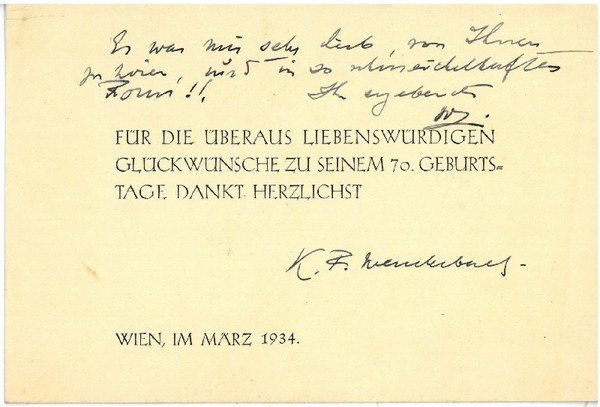 Es war mir sehr lieb, von Ihnen
zu hören, und in so schmeichelhafter
Form!! Ihr ergebenster
FÜR DIE ÜBERAUS LIEBENSWÜRDIGEN
GLÜCKWÜNSCHE ZU SEINEM 70. GEBURTS=
TAGE DANKT HERZLICHST
K. F.
WIEN, IM MÄRZ 1934.